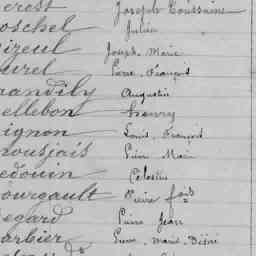 Joseph Toussaint
oschel Julien
izeul Joseph Marie
urel Pierre François
randily Augustin
ellebon henry
ignon Louis François
Pierre Marie
edouin Célestin
ourgault Pierre fois
egard Pierre Jean
arbier Pierre Marie Désiré